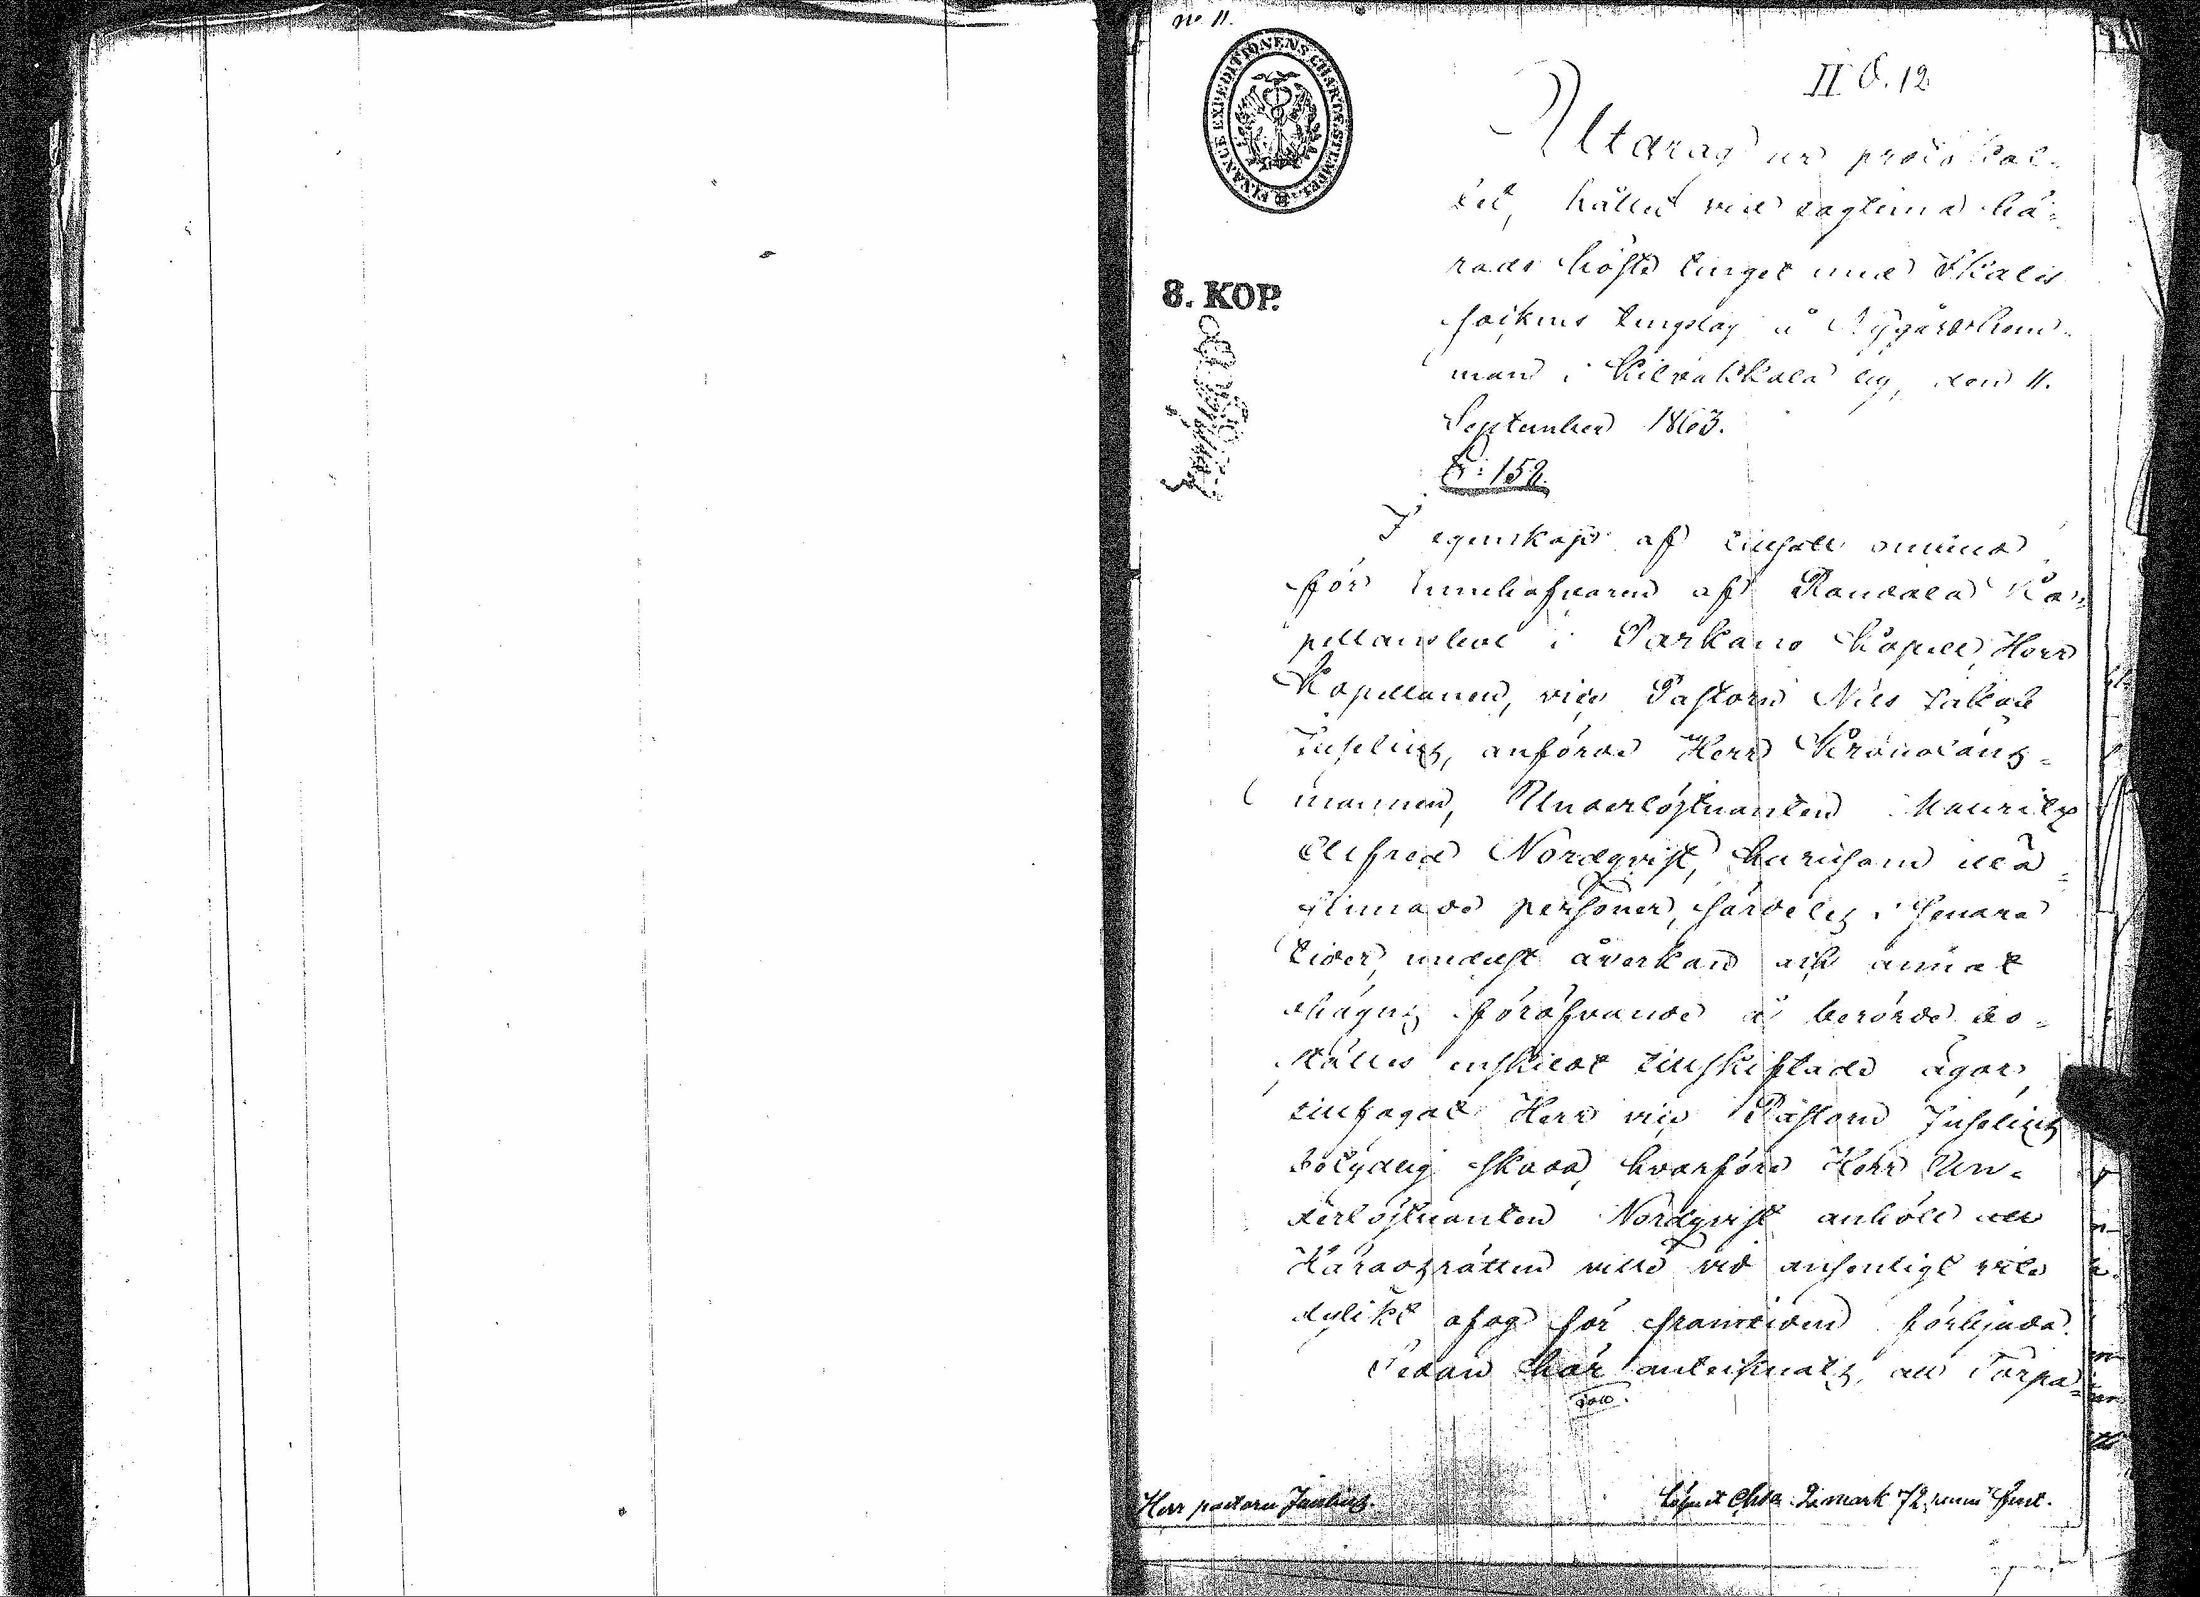 No 11.
II O. 12
FINANCE EXPEDITIONENS CHARTÆ STEMPEL
Utdrag ur protokol-
let, hållet vid lagtima hä-
rads höste tinget med Ikalis
sockens tingslag å Nygård hem-
man i Kilvakkala by, den 11.
8. KOP.
September 1863.
§: 152.
I egenskap af
för innehafvaren af Ka-
pellansbol i Parkano Kapell, Herr
Kapellanen, vice Pastorn Nils Jakob
Inselius, anförde Herr Kronoläns-
mannen, Underlöjtnanten Mauritz
Alfred Nordqvist, hurusom illa
sinnade personer, särdeles i senare
tider, medelst åverkan och annat
ohägn föröfvande å berörde bo-
ställes enskildt tillskiftade ägor,
tillfogat Herr vice Pastorn Inselius
betydlig skada, hvarföre Herr Un-
derlöjtnanten Nordqvist anhöll att
Häradsrätten ville vid ansenligt vite
dylikt ofog för framtiden förbjuda.
Sedan här antecknats, att Torpa-
Herr pastorn Inselius.
Lösen et Chta 2 mark 72 penni finst.